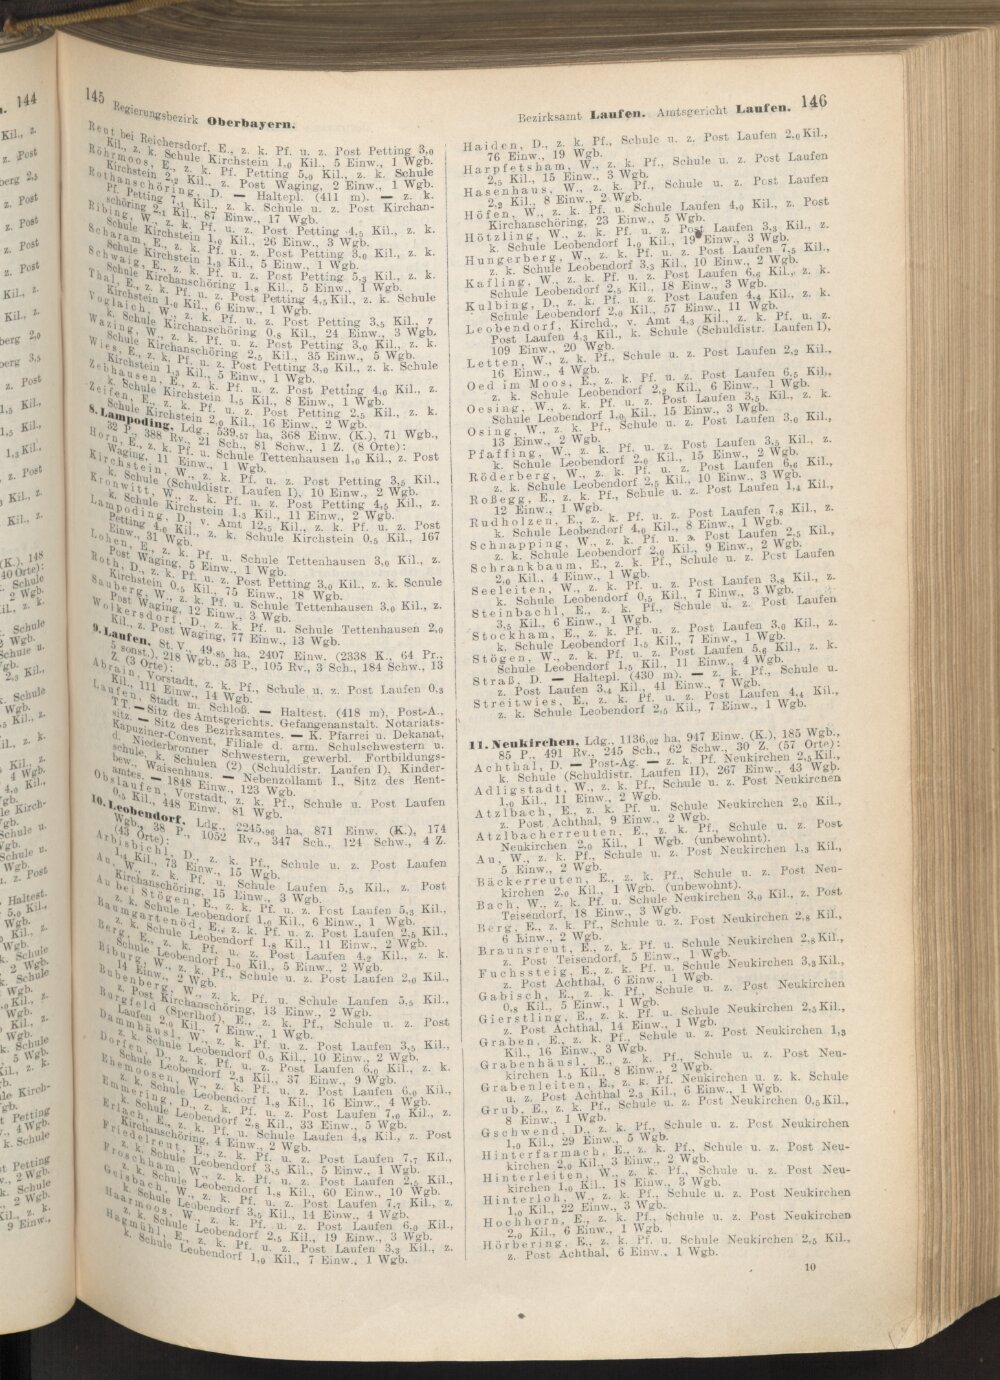 145 Regierungsbezirk Oberbayern.
Reut bei Reichersdorf, E., z. k. Pf. u. z. Post Petting 3,0
Kil., z. k. Schule Kirchstein 1,0 Kil., 5 Einw., 1 Wgb.
Röhrmoos, E., z. k. Pf. Petting 5,0 Kil., z. k. Schule
Kirchstein 2,2 Kil., z. Post Waging, 2 Einw., 1 Wgb.
Rothanschöring, D. — Haltepl. (411 m). — z. k.
Pf. Petting 7,1 Kil., z. k. Schule u. z. Post Kirchan-
schöring 2,1 Kil., 87 Einw., 17 Wgb.
Ribing, W., z. k. Pf. u. z. Post Petting 4,5 Kil., z. k.
Schule Kirchstein 1,0 Kil., 26 Einw., 3 Wgb.
Scharam, E., z. k. Pf. u. z. Post Petting 3,0 Kil., z. k.
Schule Kirchstein 1,3 Kil., 5 Einw., 1 Wgb.
Schwaig, E., z. k. Pf. u. z. Post Petting 5,3 Kil., z. k.
Schule Kirchanschöring 1,8 Kil., 5 Einw., 1 Wgb.
Thal, E., z. k. Pf. u. z. Post Petting 4,5 Kil., z. k. Schule
Kirchstein 1,0 Kil., 6 Einw., 1 Wgb.
Voglaich, W., z. k. Pf. u. z. Post Petting 3,5 Kil., z
k. Schule Kirchanschöring 0,8 Kil., 24 Einw., 3 Wgb.
Wazing, W., z. k. Pf. u. z. Post Petting 3,0 Kil., z. k.
Schule Kirchanschöring 2,5 Kil., 35 Einw., 5 Wgb.
Wies, E., z. k. Pf. u. z. Post Petting 3,0 Kil., z. k. Schule
Kirchstein 1,3 Kil., 5 Einw., 1 Wgb.
Zebhausen, E., z. k. Pf. u. z. Post Petting 4,0 Kil., z.
k. Schule Kirchstein 1,5 Kil., 8 Einw., 1 Wgb.
Zeifen, E., z. k. Pf. u. z. Post Petting 2,5 Kil., z. k.
Schule Kirchstein 2,0 Kil., 16 Einw., 2 Wgb.
8. Lampoding, Ldg., 539,57 ha, 368 Einw. (K.), 71 Wgb.,
32 P., 388 Rv., 21 Sch., 81 Schw., 1 Z. (8 Orte):
Horn, E., z. k. Pf. u. Schule Tettenhausen 1,0 Kil., z. Post
Waging, 11 Einw., 1 Wgb.
Kirchstein, W., z. k. Pf. u. z. Post Petting 3,5 Kil.,
k. Schule (Schuldistr. Laufen I), 10 Einw., 2 Wgb.
Kronwitt, W., z. k. Pf. u. z. Post Petting 4,5 Kil., z.
k. Schule Kirchstein 1,3 Kil., 11 Einw., 2 Wgb.
Lampoding, D., v. Amt 12,5 Kil., z. k. Pf. u. z. Post
Petting 4,0 Kil., z. k. Schule Kirchstein 0,5 Kil., 167
Einw., 31 Wgb.
Lohen, E., z. k. Pf. u. Schule Tettenhausen 3,0 Kil., z.
Post Waging, 5 Einw., 1 Wgb.
Roth, D., z. k. Pf. u. z. Post Petting 3,0 Kil., z. k. Schule
Kirchstein 0,5 Kil., 75 Einw., 18 Wgb.
Sauberg, W., z. k. Pf. u. Schule Tettenhausen 3,0 Kil., z.
Post Waging, 12 Einw., 3 Wgb.
Wolkersdorf, D., z. k. Pf. u. Schule Tettenhausen 2,0
Kil., z. Post Waging, 77 Einw., 13 Wgb.
9. Laufen, St. V., 49,85 ha, 2407 Einw. (2338 K., 64 Pr.,
5 sonst.), 218 Wgb., 53 P., 105 Rv., 3 Sch., 184 Schw., 13
Z. (3 Orte):
Abrain, Vorstadt, z. k. Pf., Schule u. z. Post Laufen 0,3
Kil., 111 Einw., 14 Wgb.
Laufen, Stadt m. Schloß. — Haltest. (418 m), Post-A.,
TT. — Sitz des Amtsgerichts. Gefangenanstalt. Notariats-
sitz. — Sitz des Bezirksamtes. — K. Pfarrei u. Dekanat,
Kapuziner-Convent, Filiale d. arm. Schulschwestern u.
d. Niederbronner Schwestern, gewerbl. Fortbildungs-
schule, k. Schulen (2) (Schuldistr. Laufen I), Kinder-
bew., Waisenhaus. — Nebenzollamt I., Sitz des Rent-
amtes. — 1848 Einw., 123 Wgb.
Obslaufen, Vorstadt, z. k. Pf., Schule u. z. Post Laufen
0,5 Kil., 448 Einw. 81 Wgb.
10. Leobendorf, Ldg., 2245,96 ha, 871 Einw. (K.), 174
Wgb., 38 P., 1052 Rv., 347 Sch., 124 Schw., 4 Z.
(43 Orte):
Arbisbichl, D., z. k. Pf., Schule u. z. Post Laufen
1,4 Kil., 73 Einw., 15 Wgb.
Au, W., z. k. Pf. u. Schule Laufen 5,5 Kil., z. Post
Kirchanschöring, 15 Einw., 3 Wgb.
Au bei Stögen, E., z. k. Pf. u. z. Post Laufen 5,3 Kil.,
z. k. Schule Leobendorf 1,0 Kil., 6 Einw., 1 Wgb.
Baumgartenöd, E., z. k. Pf. u. z. Post Laufen 2,5 Kil.,
z. k. Schule Leobendorf 1,8 Kil., 11 Einw., 2 Wgb.
Berg, E., z. k. Pf. u. z. Post Laufen 4,2 Kil., z. k.
Schule Leobendorf 1,0 Kil., 5 Einw., 2 Wgb.
Biburg, W., z. k. Pf., Schule u. z. Post Laufen 2,0 Kil.,
14 Einw., 2 Wgb.
Bubenberg, W., z. k. Pf. u. Schule Laufen 5,5 Kil.,
z. Post Kirchanschöring, 13 Einw., 2 Wgb.
Burgfeld (Sperlhof), E., z. k. Pf., Schule u. z. Post
Laufen 2,0 Kil., 7 Einw., 1 Wgb.
Dammhäusl, W., z. k. Pf. u. z. Post Laufen 3,5 Kil.,
z. k. Schule Leobendorf 0,5 Kil., 10 Einw., 2 Wgb.
Dorfen, D., z. k. Pf. u. z. Post Laufen 6,0 Kil., z. k.
Schule Leobendorf 2,3 Kil., 37 Einw., 9 Wgb.
Ehemoosen, W., z. k. Pf. u. z. Post Laufen 6,0 Kil.,
z. k. Schule Leobendorf 1,8 Kil., 16 Einw., 4 Wgb.
Emmering, D., z. k. Pf. u. z. Post Laufen 7,0 Kil., z.
k. Schule Leobendorf 2,8 Kil., 33 Einw., 5 Wgb.
Erlach, E., z. k. Pf. u. Schule Laufen 4,8 Kil., z. Post
Kirchanschöring, 4 Einw., 2 Wgb.
Friedelreut, E., z. k. Pf. u. z. Post Laufen 7,7 Kil.,
z. k. Schule Leobendorf 3,5 Kil., 5 Einw., 1 Wgb.
Froschham, W., z. k. Pf. u. z. Post Laufen 2,5 Kil.,
z. k. Schule Leobendorf 1,8 Kil., 60 Einw., 10 Wgb.
Gaisbach, W., z. k. Pf. u. z. Post Laufen 7,7 Kil., z.
k. Schule Leobendorf 3,5 Kil., 14 Einw., 4 Wgb.
Haarmoos, W., z. k. Pf. u. z. Post Laufen 6,0 Kil.,
z. k. Schule Leobendorf 2,5 Kil., 19 Einw., 3 Wgb.
Hagmühl, E., z. k. Pf. u. z. Post Laufen 3,3 Kil., z.
k. Schule Leobendorf 1,0 Kil., 7 Einw., 1 Wgb.
Bezirksamt Laufen. Amtsgericht Laufen. 146
Haiden, D., z. k. Pf., Schule u. z. Post Laufen 2,0 Kil.,
76 Einw., 19 Wgb.
Harpfetsham, W., z. k. Pf., Schule u. z. Post Laufen
2,5 Kil., 15 Einw., 3 Wgb.
Hasenhaus, W., z. k. Pf., Schule u. z. Post Laufen
2,2 Kil., 8 Einw., 2 Wgb.
Höfen, W., z. k. Pf. u. Schule Laufen 4,0 Kil., z. Post
Kirchanschöring, 23 Einw., 5 Wgb.
Hötzling, W., z. k. Pf. u. z. Post Laufen 3,3 Kil., z.
k. Schule Leobendorf 1,0 Kil., 19 Einw., 3 Wgb.
Hungerberg, W., z. k. Pf. u. z. Post Laufen 7,5 Kil.,
z. k. Schule Leobendorf 3,3 Kil., 10 Einw., 2 Wgb.
Kafling, W., z. k. Pf. u. z. Post Laufen 6,6 Kil., z. k.
Schule Leobendorf 2,5 Kil., 18 Einw., 3 Wgb.
Kulbing, D., z. k. Pf. u. z. Post Laufen 4,4 Kil., z. k.
Schule Leobendorf 2,0 Kil., 57 Einw., 11 Wgb.
Leobendorf, Kirchd., v. Amt 4,3 Kil., z. k. Pf. u. z.
Post Laufen 4,3 Kil., k. Schule (Schuldistr. Laufen I),
109 Einw., 20 Wgb.
Letten, W., z. k. Pf., Schule u. z. Post Laufen 2,2 Kil.,
16 Einw., 4 Wgb.
Oed im Moos, E., z. k. Pf. u. z. Post Laufen 6,5 Kil.,
z. k. Schule Leobendorf 2,2 Kil., 6 Einw., 1 Wgb.
Oesing, W., z. k. Pf. u. z. Post Laufen 3,5 Kil., z. k.
Schule Leobendorf 1,0 Kil., 15 Einw., 3 Wgb.
Osing, W., z. k. Pf., Schule u. z. Post Laufen 3,0 Kil.,
13 Einw., 2 Wgb.
Pfaffing, W., z. k. Pf. u. z. Post Laufen 3,5 Kil., z.
k. Schule Leobendorf 2,0 Kil., 15 Einw., 2 Wgb.
Röderberg, W., z. k. Pf. u. z. Post Laufen 6,6 Kil.,
z. k. Schule Leobendorf 2,5 Kil., 10 Einw., 3 Wgb.
Roßegg, E., z. k. Pf., Schule u. z. Post Laufen 1,4 Kil.,
12 Einw., 1 Wgb.
Rudholzen, E., z. k. Pf. u. z. Post Laufen 7,8 Kil., z.
k. Schule Leobendorf 4,0 Kil., 8 Einw., 1 Wgb.
Schnapping, W., z. k. Pf. u. z. Post Laufen 2,5 Kil.,
z. k. Schule Leobendorf 2,0 Kil., 9 Einw., 2 Wgb.
Schrankbaum, E., z. k. Pf., Schule u. z. Post Laufen
2,0 Kil., 4 Einw., 1 Wgb.
Seeleiten, W., z. k. Pf. u. z. Post Laufen 3,8 Kil., z.
k. Schule Leobendorf 0,5 Kil., 7 Einw., 3 Wgb.
Steinbachl, E., z. k. Pf., Schule u. z. Post Laufen
3,5 Kil., 6 Einw., 1 Wgb.
Stockham, E., z. k. Pf. u. z. Post Laufen 3,0 Kil., z.
k. Schule Leobendorf 1,5 Kil., 7 Einw., 1 Wgb.
Stögen, W., z. k. Pf. u. z. Post Laufen 5,6 Kil., z. k.
Schule Leobendorf 1,5 Kil., 11 Einw., 4 Wgb.
Straß, D. — Haltepl. (430 m). — z. k. Pf., Schule u.
z. Post Laufen 3,4 Kil., 41 Einw., 7 Wgb.
Streitwies, E., z. k. Pf. u. z. Post Laufen 4,4 Kil.,
z. k. Schule Leobendorf 2,5 Kil., 7 Einw., 1 Wgb.
11. Neukirchen, Ldg., 1136,02 ha, 947 Einw. (K.), 185 Wgb.,
85 P., 491 Rv., 245 Sch., 62 Schw., 30 Z. (57 Orte):
Achthal, D. — Post-Ag. — z. k. Pf. Neukirchen 2,5 Kil.,
k. Schule (Schuldistr. Laufen II), 267 Einw., 43 Wgb.
Adligstadt, W., z. k. Pf., Schule u. z. Post Neukirchen
1,0 Kil., 11 Einw., 2 Wgb.
Atzlbach, E., z. k. Pf. u. Schule Neukirchen 2,0 Kil.,
z. Post Achthal, 9 Einw., 2 Wgb.
Atzlbacherreuten, E., z. k. Pf., Schule u. z. Post
Neukirchen 2,0 Kil., 1 Wgb. (unbewohnt).
Au, W., z. k. Pf., Schule u. z. Post Neukirchen 1,3 Kil.,
5 Einw., 2 Wgb.
Bäckerreuten, E., z. k. Pf., Schule u. z. Post Neu-
kirchen 2,0 Kil., 1 Wgb. (unbewohnt).
Bach, W., z. k. Pf. u. Schule Neukirchen 3,0 Kil., z. Post
Teisendorf, 18 Einw., 3 Wgb.
Berg, E., z. k. Pf., Schule u. z. Post Neukirchen 2,8 Kil.,
6 Einw., 2 Wgb.
Braunsreut, E., z. k. Pf. u. Schule Neukirchen 2,8 Kil.,
z. Post Teisendorf, 5 Einw., 1 Wgb.
Fuchssteig, E., z. k. Pf. u. Schule Neukirchen 3,3 Kil.,
z. Post Achthal, 6 Einw., 1 Wgb.
Gabisch, E., z. k. Pf., Schule u. z. Post Neukirchen
0,8 Kil., 5 Einw., 1 Wgb.
Gierstling, E., z. k. Pf. u. Schule Neukirchen 2,5 Kil.,
z. Post Achthal, 14 Einw., 1 Wgb.
Graben, E., z. k. Pf., Schule u. z. Post Neukirchen 1,3
Kil., 16 Einw., 3 Wgb.
Grabenhäusl, E., z. k. Pf., Schule u. z. Post Neu-
kirchen 1,5 Kil., 8 Einw., 2 Wgb.
Grabenleiten, E., z. k. Pf. Neukirchen u. z. k. Schule
u. z. Post Achthal 2,3 Kil., 6 Einw., 1 Wgb.
Grub, E., z. k. Pf., Schule u. z. Post Neukirchen 0,5 Kil.,
8 Einw., 1 Wgb.
Gschwend, D., z. k. Pf., Schule u. z. Post Neukirchen
1,0 Kil., 29 Einw., 5 Wgb.
Hinterfarmach, E., z. k. Pf., Schule u. z. Post Neu-
kirchen 2,0 Kil., 3 Einw., 2 Wgb.
Hinterleiten, W., z. k. Pf., Schule u. z. Post Neu-
kirchen 1,0 Kil., 18 Einw., 3 Wgb.
Hinterloh, W., z. k. Pf., Schule u. z. Post Neukirchen
1,0 Kil., 22 Einw., 3 Wgb.
Hochhorn, E., z. k. Pf., Schule u. z. Post Neukirchen
2,0 Kil., 6 Einw., 1 Wgb.
Hörbering, E., z. k. Pf. u. Schule Neukirchen 2,5 Kil.,
z. Post Achthal, 6 Einw., 1 Wgb.
10